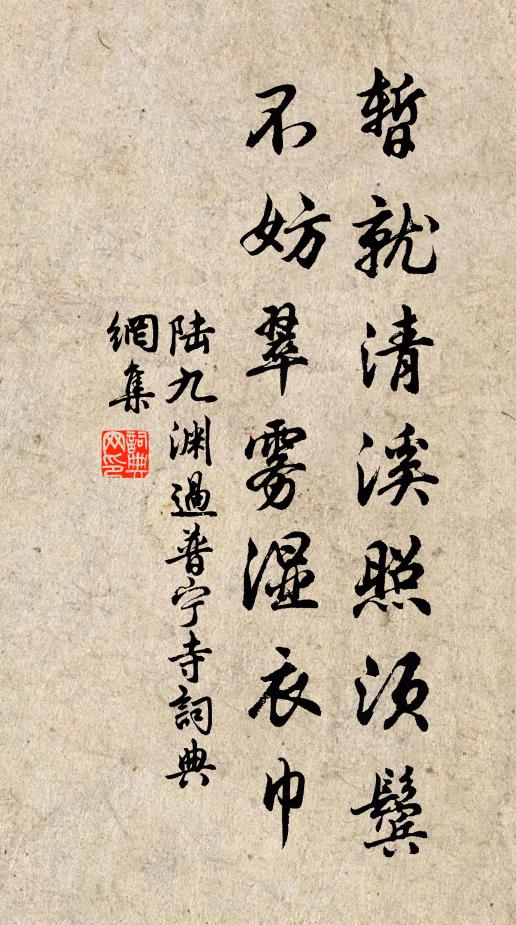 暂就清溪照须鬓
不妨翠雾湿衣巾
陆九渊過普宁寺詞典
網集
詞典網印